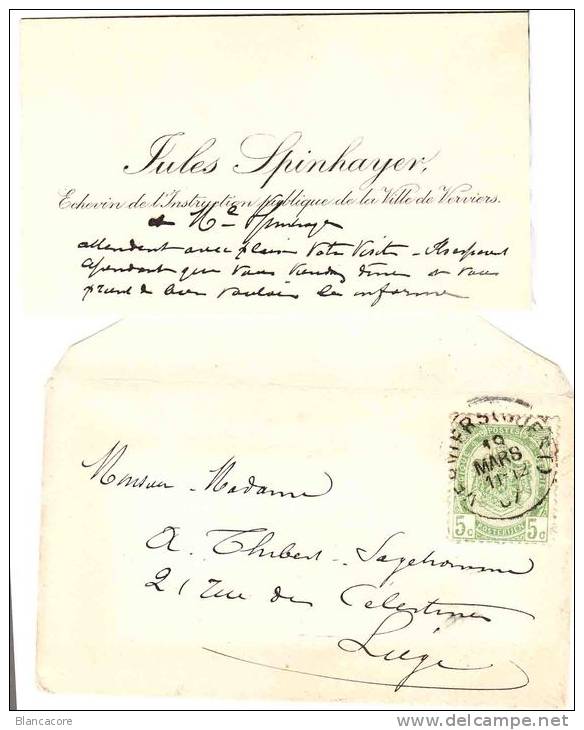 Jules Spinhayer,
Echevin de l'Instruction publique de la Ville de Verviers.
& Me Spinhayer
attendent avec plaisir votre visite - Ils espèrent
cependant que vous viendrez dîner & vous
prient de bien vouloir les informer
VERVIERS (OUEST)
19
MARS
POSTES
5c 5c
POSTERIJEN
Monsieur - Madame
A. Thibert - Sagehomme
21 rue des Célestines
Liège
Blancacore
www.delcampe.net